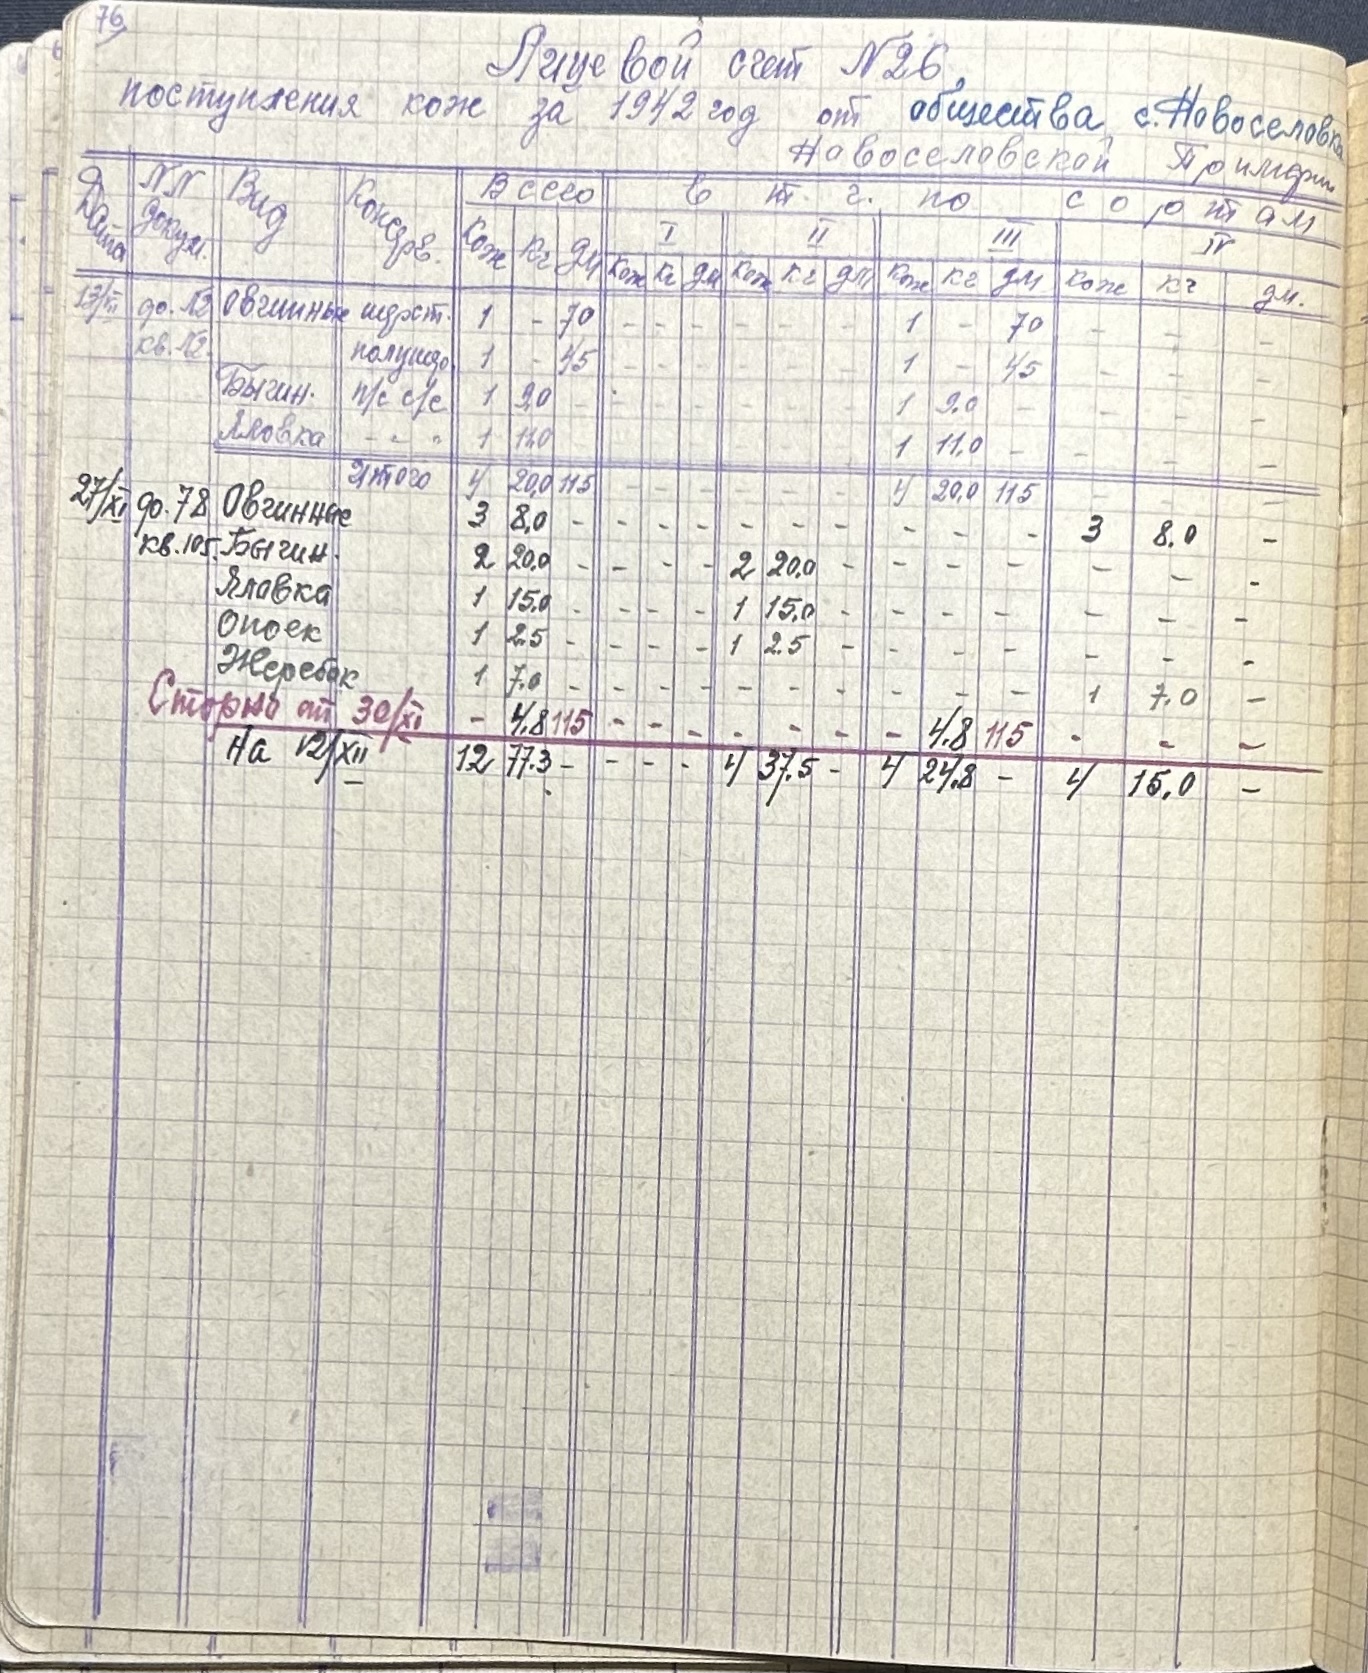 76
Лицевой счет N26
поступления кож за 1942 год от общества с. Новоселовка
Новоселовской
Дата NN докум. Вид Консерв. Всего в т. ч. по сортам
I II III IV
Кож кг дм Кож кг дм Кож кг дм Кож кг дм Кож кг дм.
до. 12 Овчинные шерст. 1 - 70 - - - - - - 1 - 70 - - -
кв. 12. 1 - 45 - - - - - - 1 - 45 - - -
Бычин. п/с с/с 1 9.0 - - - - - - - 1 9.0 - - - -
Яловка - " - 1 11.0 - - - - - - 1 11.0 - - - -
Итого 4 20,0 115 - - - - - - 4 20,0 115 - - -
27/XI до. 78 Овчинные 3 8,0 - - - - - - - - - - 3 8.0 -
кв. 105. Бычин. 2 20.0 - - - - 2 20,0 - - - - - - -
Яловка 1 15.0 - - - - 1 15.0 - - - - - - -
Опоек 1 2.5 - - - - 1 2.5 - - - - - - -
Жеребок 1 7.0 - - - - - - - - - - 1 7.0 -
Сторно от 30/XI - 4.8 115 - - - - - - - 4.8 115 - - -
На 12/XII 12 77.3 - - - - 4 37.5 - 4 24.8 - 4 15.0 -